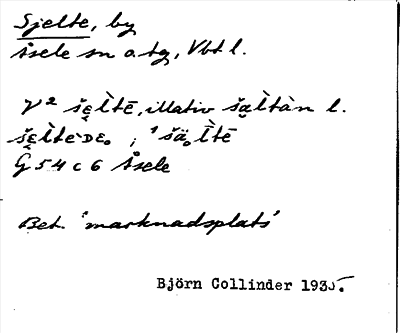 Sjelte, by
Åsele sn o. tg, Vbt l.
V² še̮l̀tē, illativ ša̮l̀tàn l.
še̮l̀tèDE₀ ; ¹šä₀l̄̀tē
G 54 c 6 Åsele
Bet. 'marknadsplats'
Björn Collinder 1935.